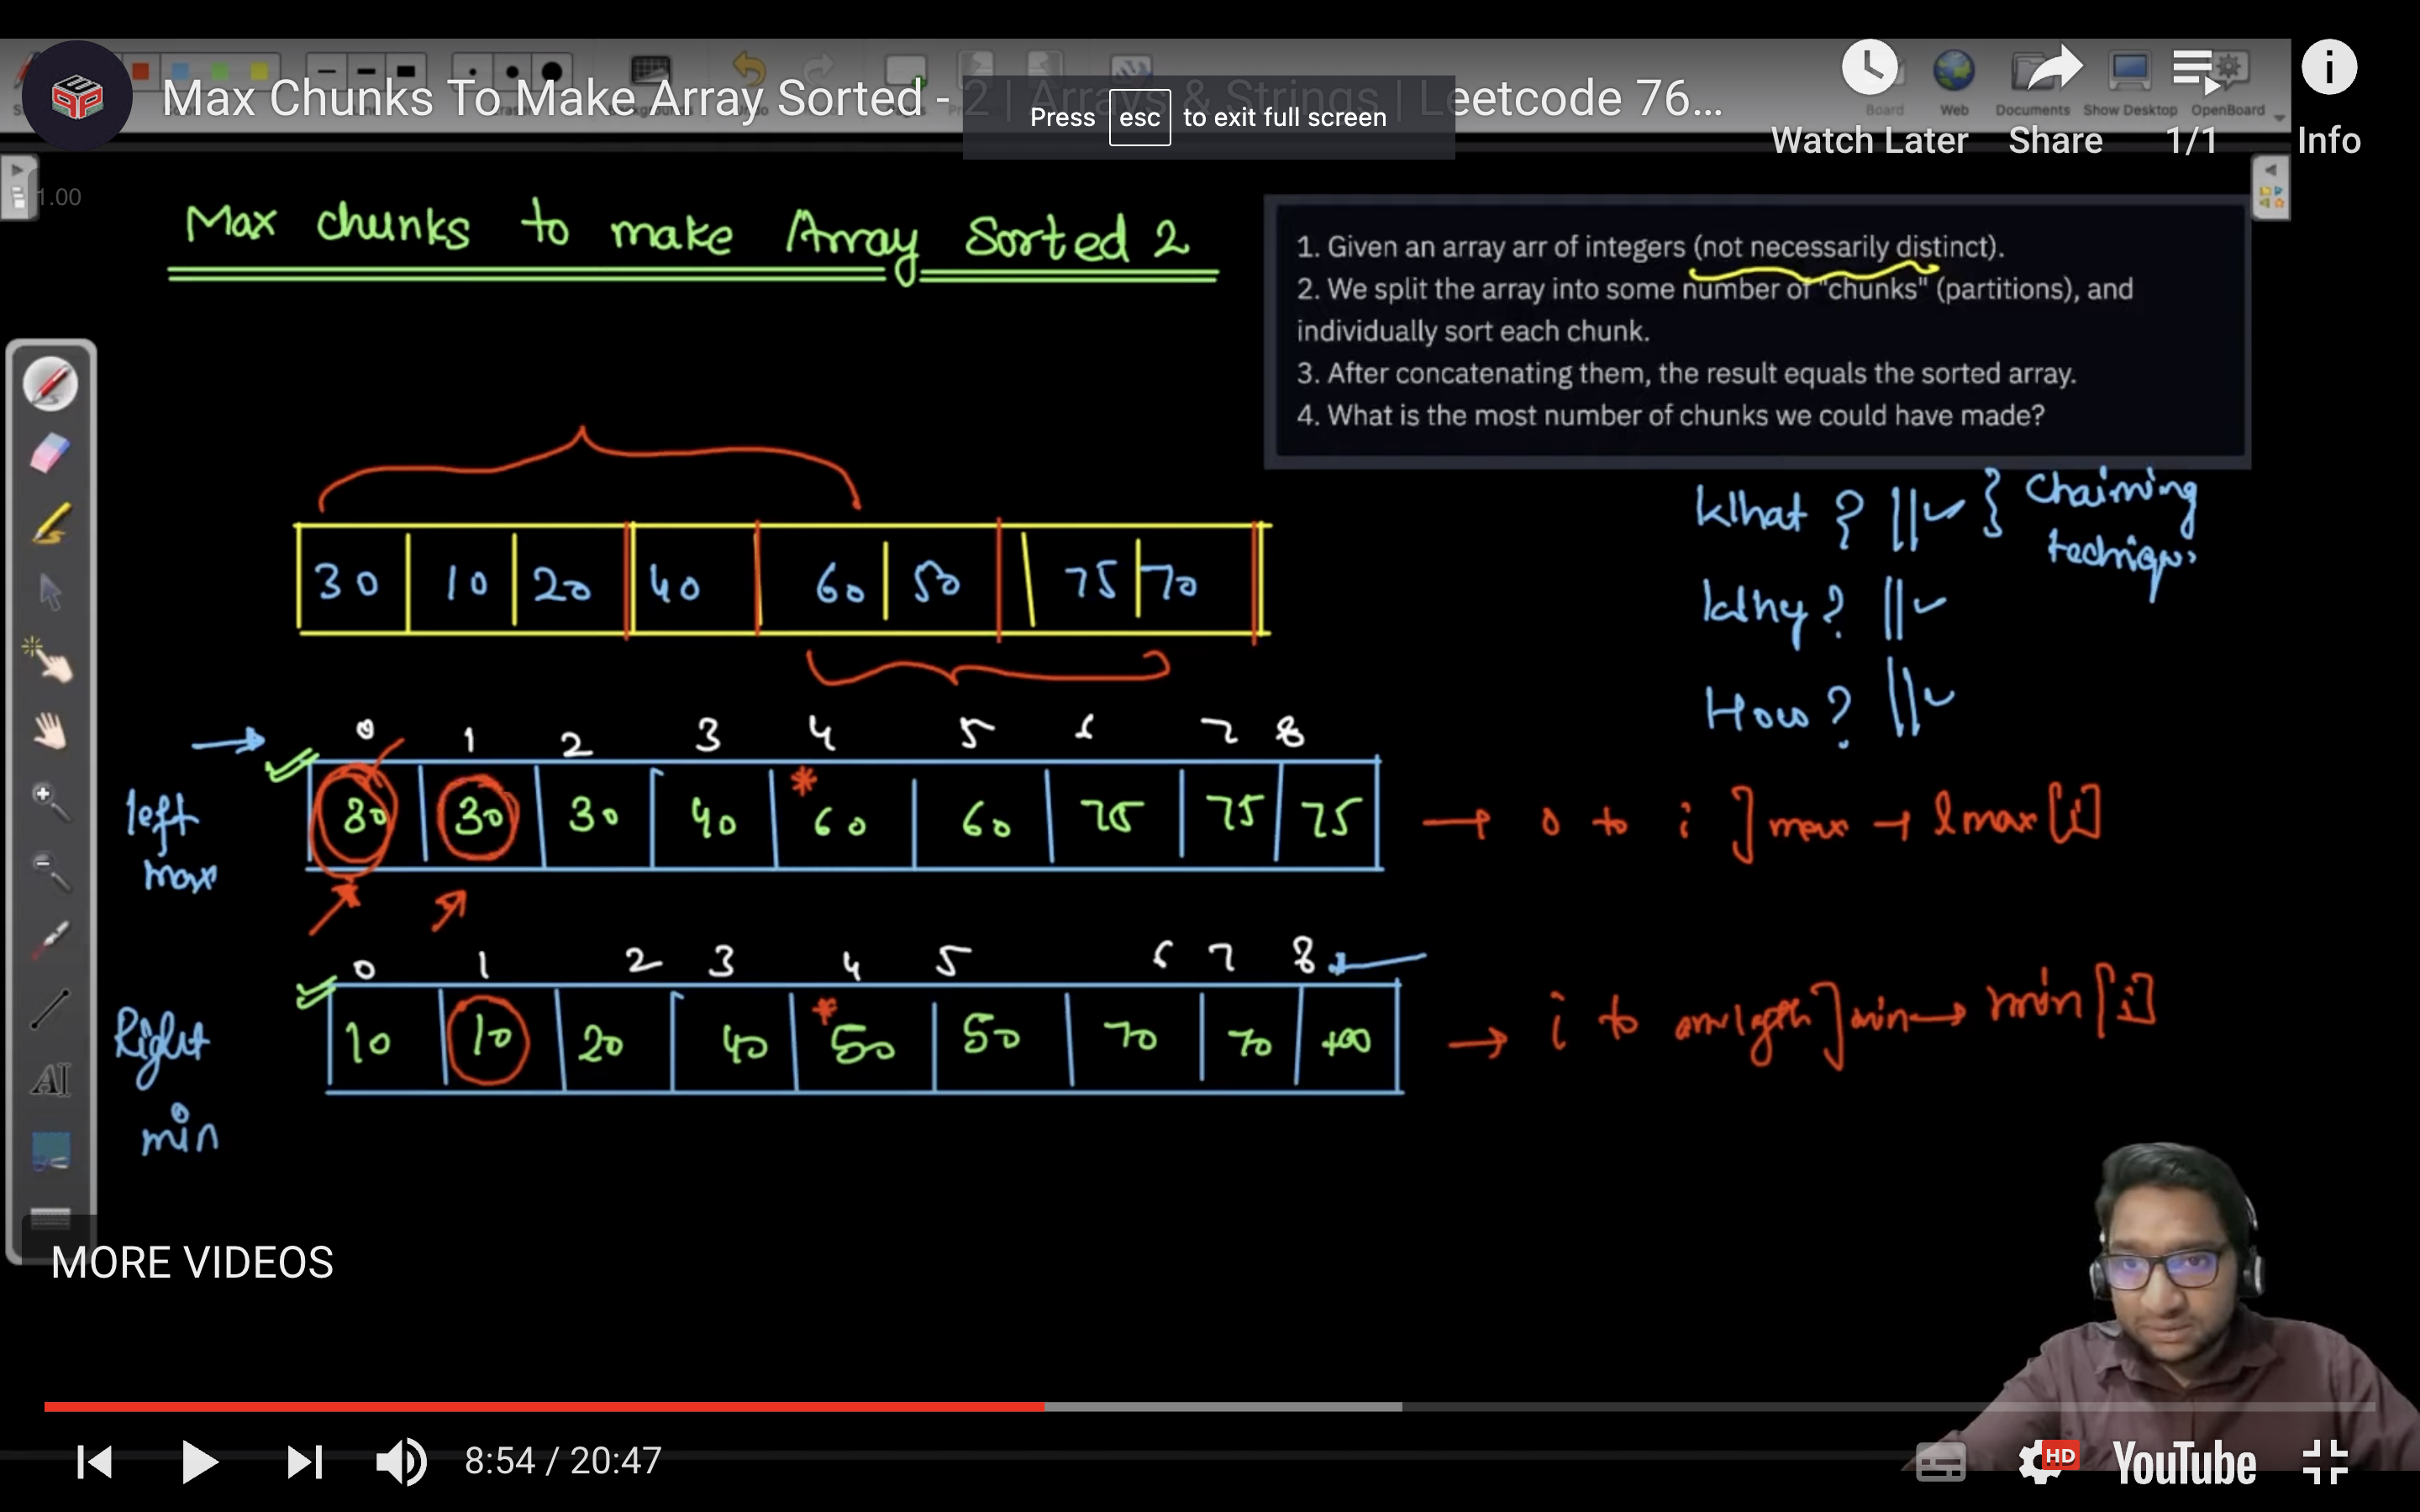 Max Chunks To Make Array Sorted - 2 | Arrays & Strings | Leetcode 76...
Press esc to exit full screen
Board Web Documents Show Desktop OpenBoard
Watch Later Share 1/1 Info
1.00
Max chunks to make Array Sorted 2
1. Given an array arr of integers (not necessarily distinct).
2. We split the array into some number of "chunks" (partitions), and
individually sort each chunk.
3. After concatenating them, the result equals the sorted array.
4. What is the most number of chunks we could have made?
What ? || } Chaining
technique
Why ? ||
How ? ||
30 10 20 40 60 50 75 70
0 1 2 3 4 5 6 7 8
left
max
30 30 30 40 * 60 60 75 75 75
→ 0 to i ] max → lmax[i]
0 1 2 3 4 5 6 7 8
Right
min
10 10 20 40 * 50 50 70 70 +∞
→ i to arr.length ] min → min[i]
MORE VIDEOS
8:54 / 20:47
HD YouTube